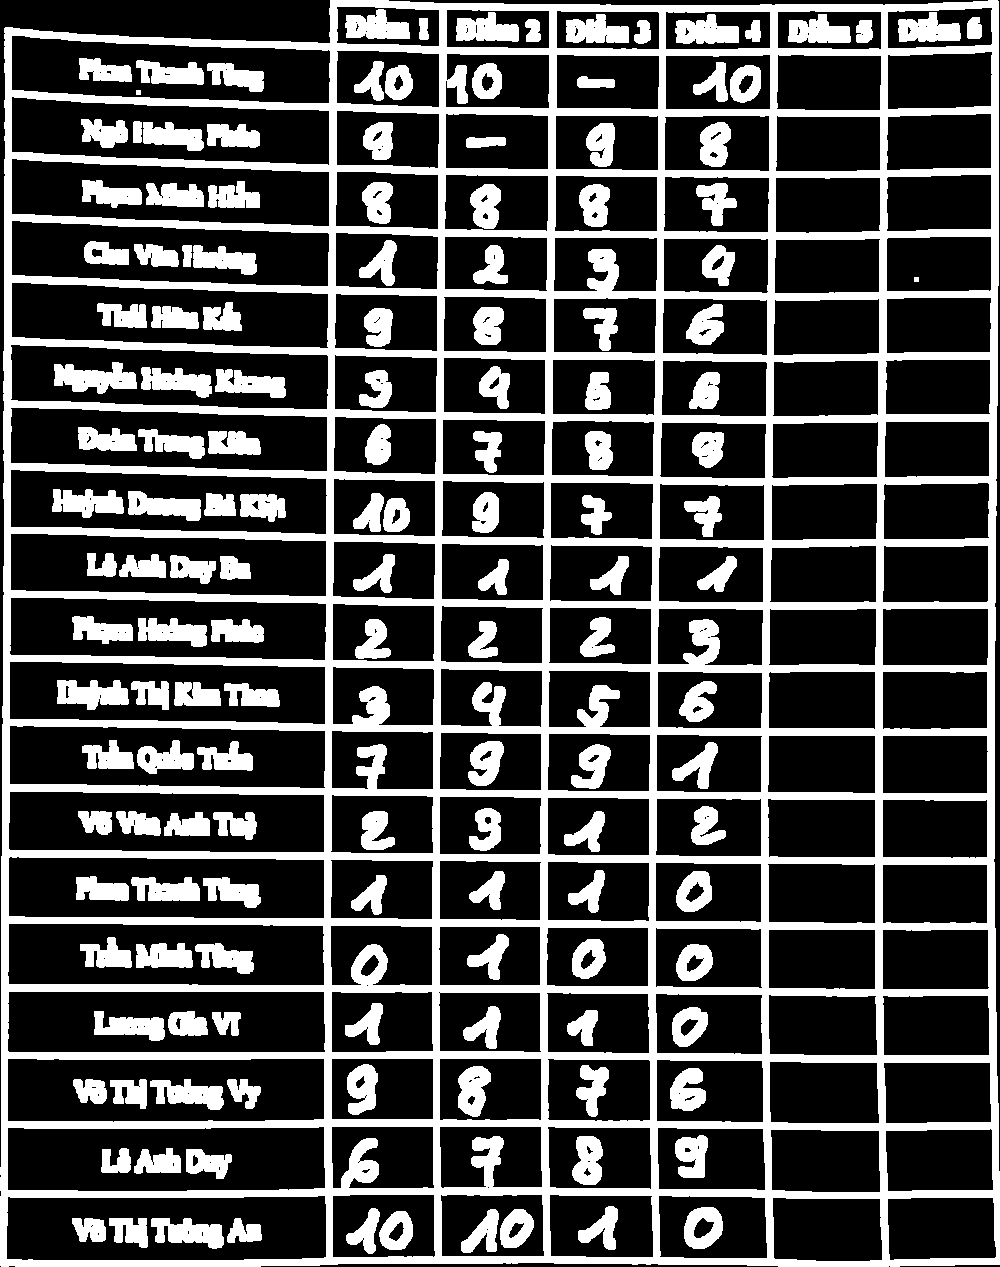 Điểm 1 Điểm 2 Điểm 3 Điểm 4 Điểm 5 Điểm 6
Phan Thanh Tùng 10 10 – 10
Ngô Hoàng Phúc 9 – 9 8
Phạm Minh Hiển 8 8 8 7
Chu Văn Hoàng 1 2 3 4
Thái Hữu Kết 9 8 7 6
Nguyễn Hoàng Khang 3 4 5 6
Đoàn Trung Kiên 6 7 8 9
Huỳnh Dương Bá Kiệt 10 9 7 7
Lê Anh Duy 1 1 1 1
Phạm Hoàng Phúc 2 2 2 3
Huỳnh Thị Kim Thoa 3 4 5 6
Trần Quốc Tuấn 7 9 9 1
Võ Văn Anh Tuệ 2 3 1 2
Phan Thanh Tùng 1 1 1 0
Trần Minh Tùng 0 1 0 0
Lương Gia Vĩ 1 1 1 0
Võ Thị Tường Vy 9 8 7 6
Lê Anh Duy 6 7 8 9
Võ Thị Tường An 10 10 1 0